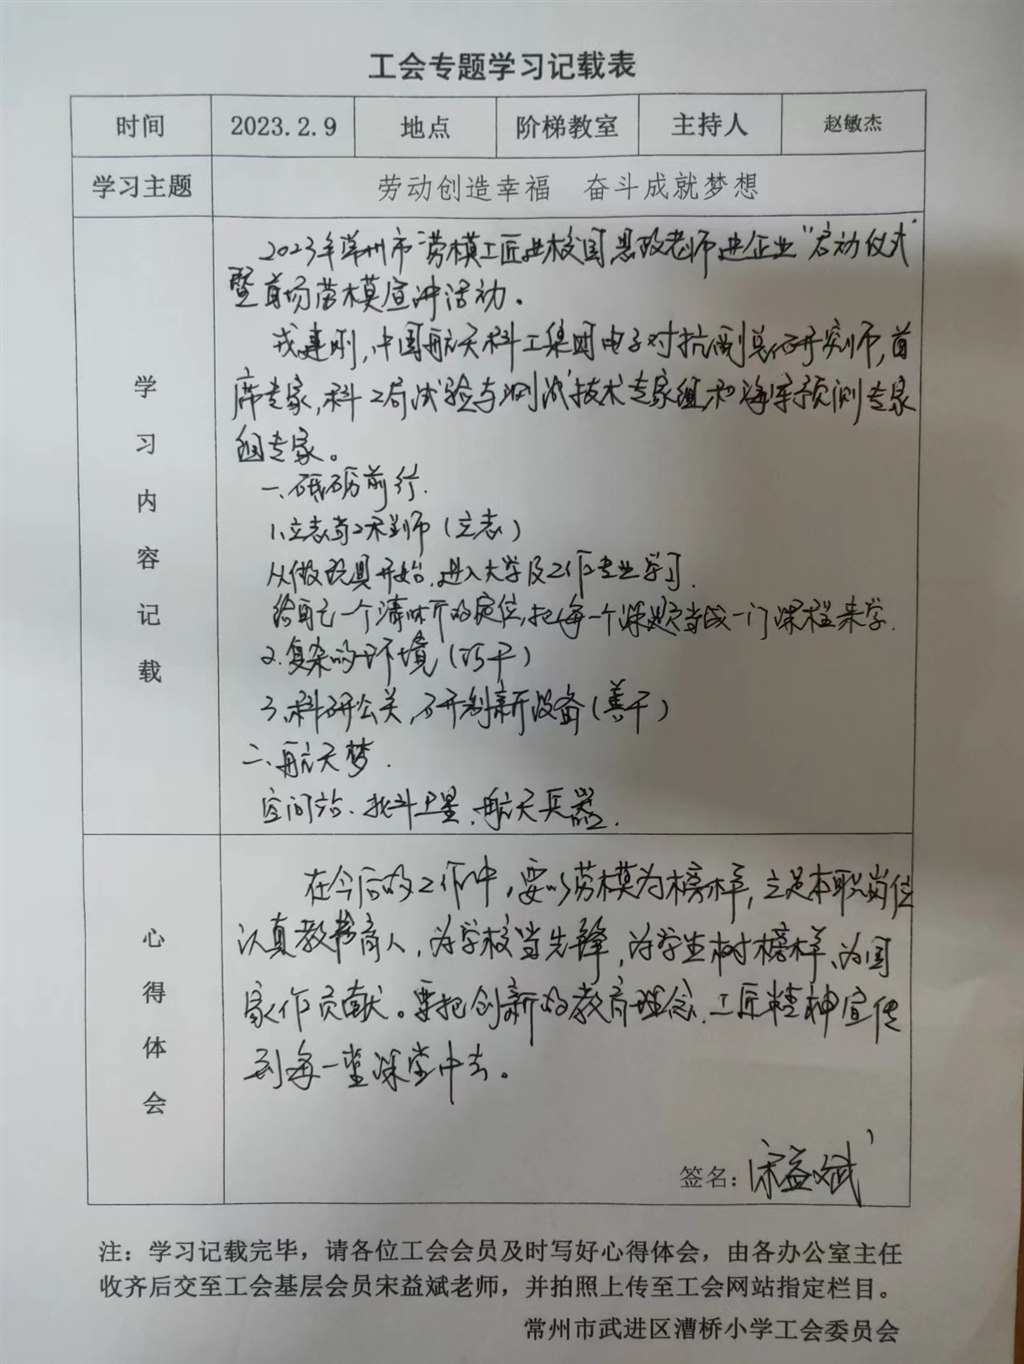 工会专题学习记载表
时间 2023.2.9 地点 阶梯教室 主持人 赵敏杰
学习主题 劳动创造幸福 奋斗成就梦想
学习内容记载
2023年常州市“劳模工匠进校园 思政老师进企业”启动仪式
暨首场劳模宣讲活动。
戎建刚,中国航天科工集团电子对抗副总研究师,首
席专家,科工局试验与测试技术专家组和海军预测专家
组专家。
一、砥砺前行.
1、立志 (立志)
从做玩具开始,进入大学及工作专业学习.
给自己一个清晰的定位,把每一个课题当成一门课程来学.
2.复杂的环境(巧干)
3、科研公关,研制新设备(善干)
二、航天梦.
空间站、北斗卫星、航天兵器.
心得体会
在今后的工作中,要以劳模为榜样,立足本职岗位
认真教书育人,为学校当先锋,为学生树榜样、为国
家作贡献。要把创新的教育理念、工匠精神宣传
到每一堂课堂中去。
签名:宋益斌
注:学习记载完毕,请各位工会会员及时写好心得体会,由各办公室主任
收齐后交至工会基层会员宋益斌老师,并拍照上传至工会网站指定栏目。
常州市武进区漕桥小学工会委员会